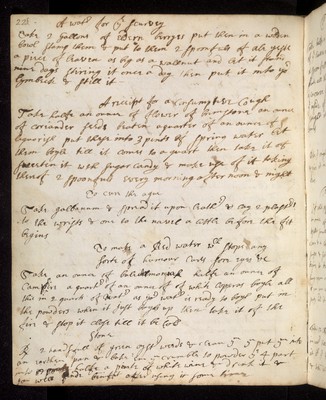 228
A watr for ye scurvey
Take 2 gallons of Eldern berryes put them in a wooden
bowl stamp them & put to them 2 spoonfuls of ale yeist
a piece of leaven as big as a wallnut and let it stand
days stiring it once a day then put it into ye
Lymbick & still it
A receipt for a consumptive Cough
Take halfe an ounce of flower of brimstone an ounce
of coriander seeds beaten a quarter of an ounce of
liquorish put these into 3 pints of spring water let
them boyle till it comes to a quart then take it of
sweeten it with sugar candy & make use of it taking
thereof 2 spoonfuls every morning afternoon & night
To cure the ague
Take galbanum & spread it upon leather & lay 2 plasters
to the wrists & one to the navel a little before the fit
begins
To make a water stops any
sorts of humours cures sore eyes &c
Take an ounce of bolearmoniack halfe an ounce of
Camfire a quartr of an ounce of white coperas boyle all
this in 2 quarts of watr as yor watr is ready to boyl put in
the powders when it Just boyls up then take it off the
fire & stop it close till it be Cold
Stone
2 handfull of green & clean put
an earthen pan & bake to powder 4 part
to halfe a pint of white wine & drink it
for